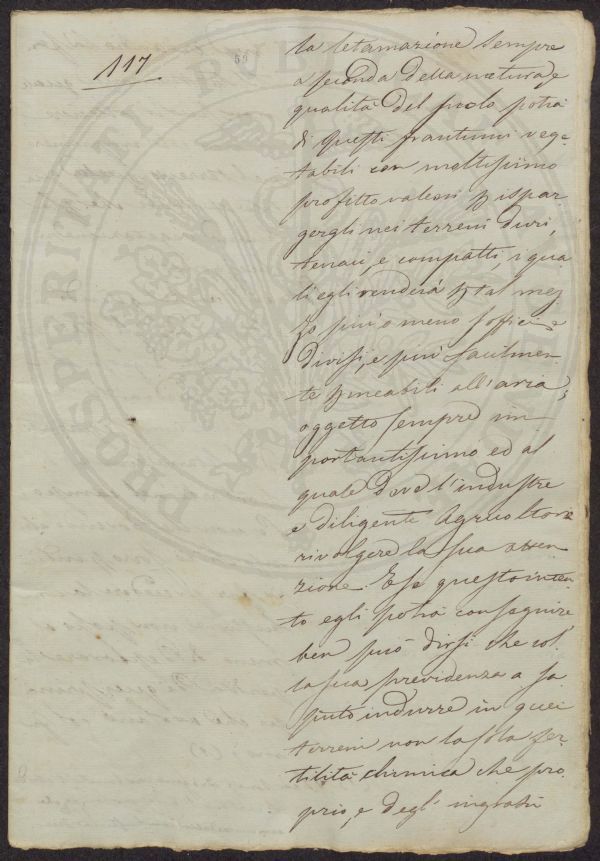 117
59
la letamazione sempre
a seconda della natura, e
qualità del suolo potrà
di questi frantumi vege-
tabili con moltissimo
profitto valersi p ispar
gergli nei terreni duri,
tenaci, e compatti, i qua
li egli renderà p tal mez
zo più o meno soffici e
divisi, e più facilmen-
te pmeabili all'aria,
oggetto sempre im
portantissimo ed al
quale deve l'industre
e diligente Agricoltore
rivolgere la sua atten
zione. E se questo inten
to egli potrà conseguire
ben può dirsi che col
la sua previdenza a sa
puto indurre in quei
terreni non la sola fer-
tilità chimica che pro
prio, e degl'ingrassi
PROSPERITATI PUBLICAE